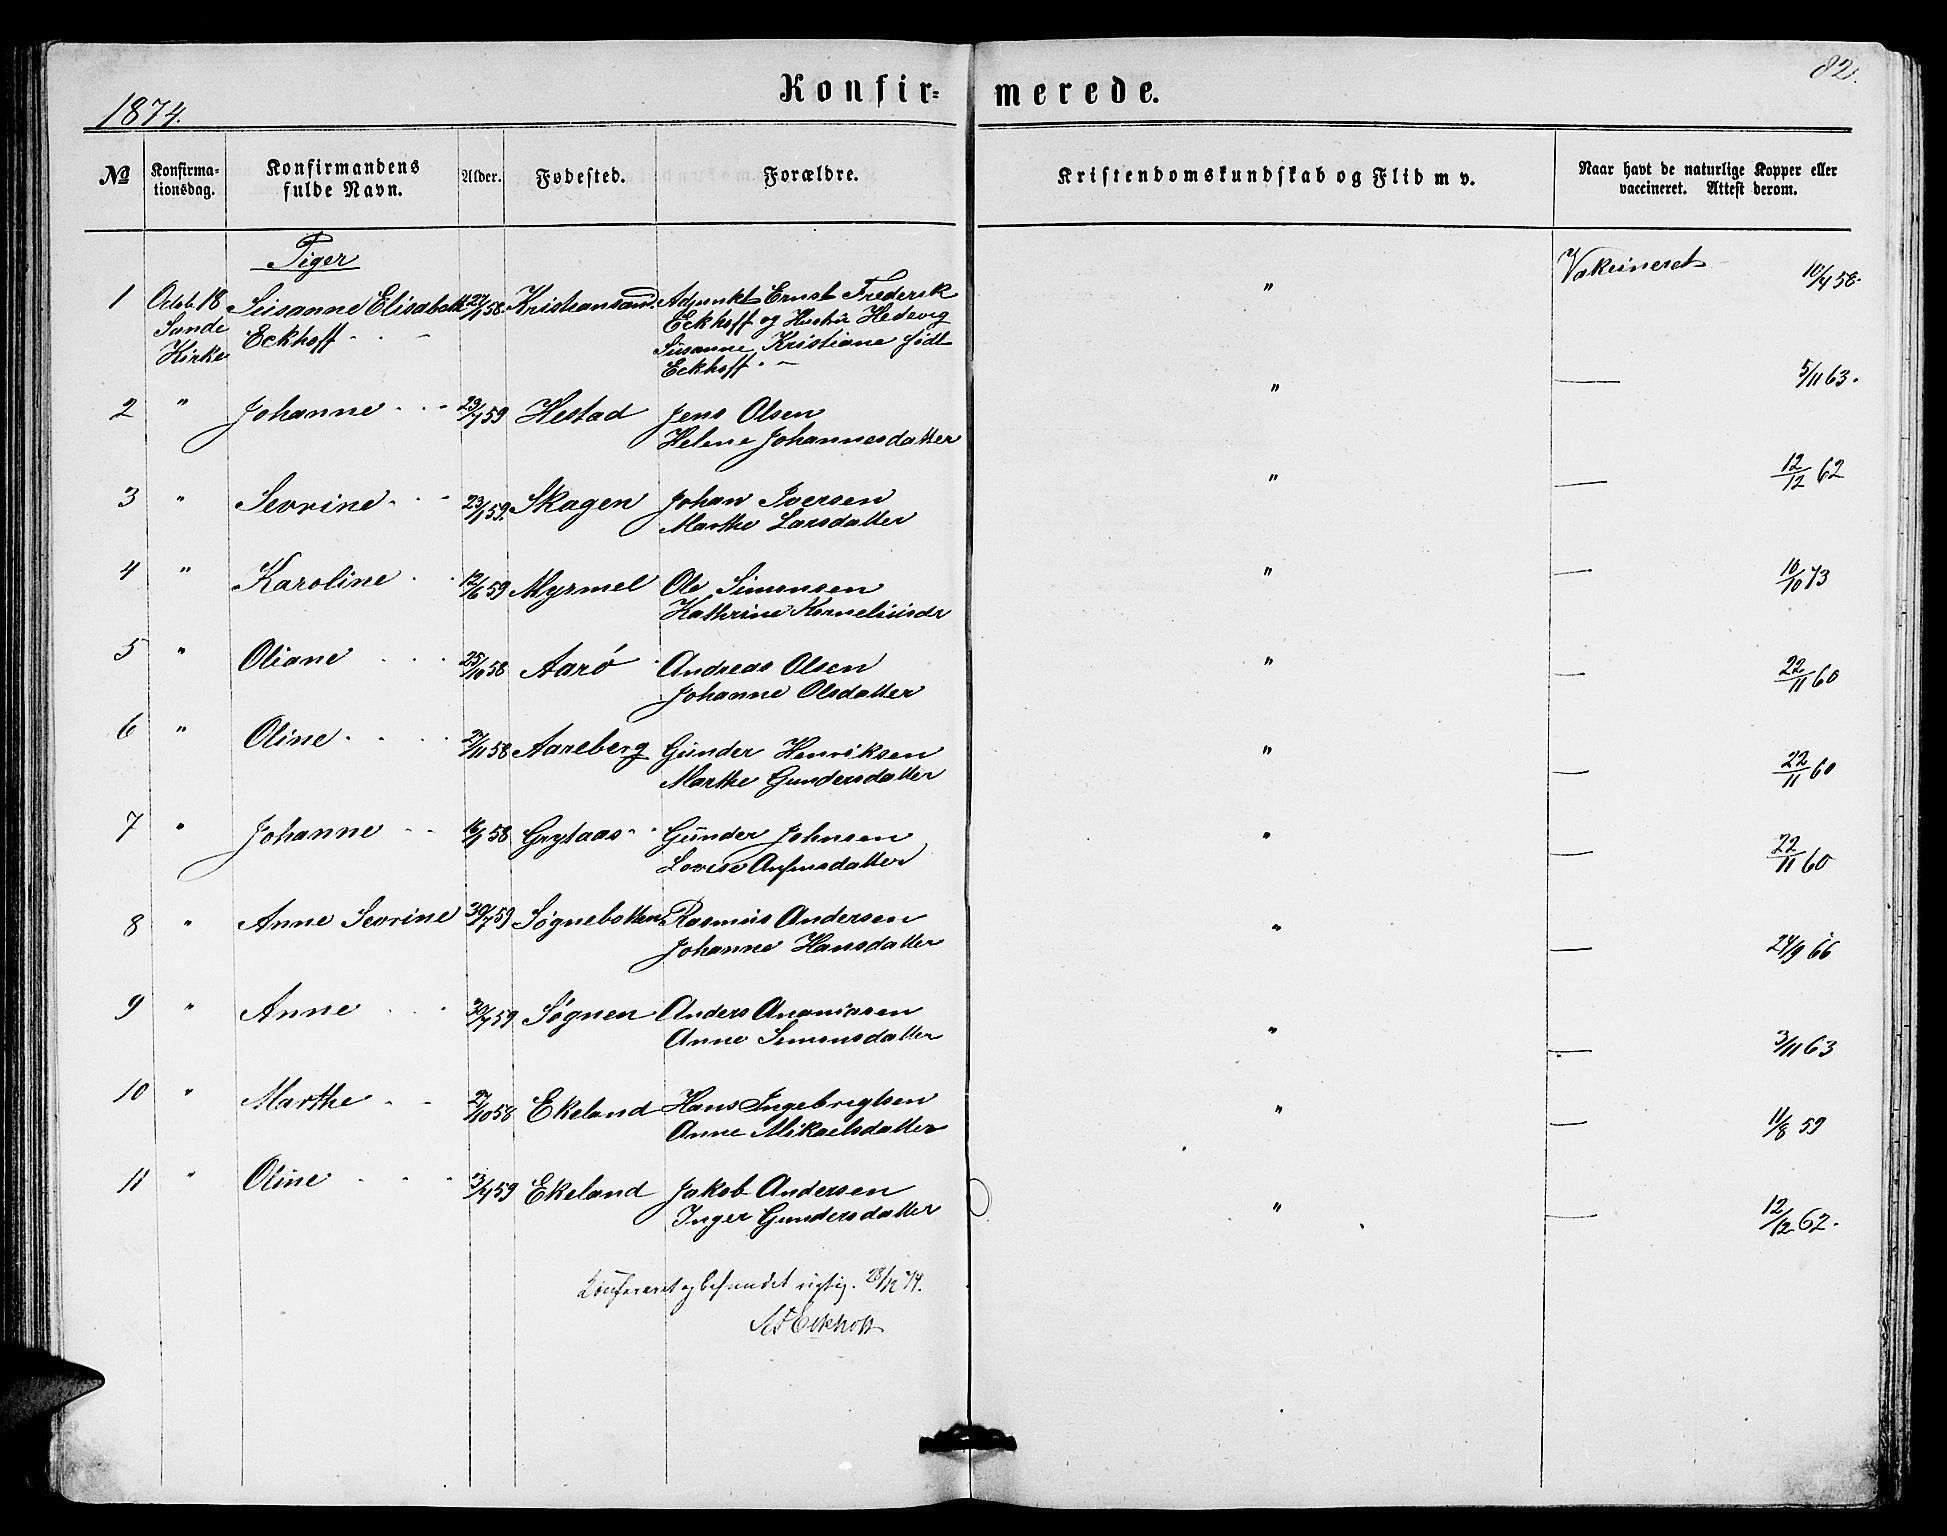 82.
Konfir- merede.
1874.
No
Konfirma-
tionsdag.
Konfirmandens
fulde Navn.
Alder.
Fødested.
Forældre.
Kristendomskundskab og Flid m v.
Naar havt de naturlige Kopper eller
vaccineret. Attest derom.
Piger
1 Octob. 18 Susanne Elisabeth /58 Kristiansand. Adjunkt Ernst Frederik " Vakcineret 58.
Sande Eckhoff - - Eckhoff og Hustru Hedevig
Kirke Susanne Kristiane født
Eckhoff. -
2 " Johanne - - 23/7 59 Hestad Jens Olsen " — 5/11 63.
Helene Johannesdatter
3 " Sevrine - - 59. Skagen Johan Iversen " — 12/12 62
Marthe Larsdatter
4 " Karoline - - 12/6 59 Myrmel Ole Simensen " — 10/10 73
Kathrine Korneliusdr
5 " Oliane - - 25/10 58 Aarø Andreas Olsen " — 22/11 60
Johanne Olsdatter
6 " Oline - - 58 Aareberg Gunder Henriksen " — 22/11 60
Marthe Gundersdatter
7 " Johanne - - 58 Grytaas - - Gunder Johnsen " — 22/11 60
Lovise Anfinsdatter
8 " Anne Sevrine 30/7 59 Søgnebotten Rasmus Andersen " — 24/9 66
Johanne Hansdatter
9 " Anne - - 59 Søgnen Anders Ananiasen " — 3/11 63
Anne Simonsdatter
10 " Marthe - - 27/10 58 Ekeland Hans Ingebregtsen " — 11/8 59
Anne Mikaelsdatter
11 " Oline - - 59 Ekeland Jakob Andersen " — 12/12 62.
Inger Gundersdatter
Konfereret og befundet rigtig. 28/12 74.
Eckhoff